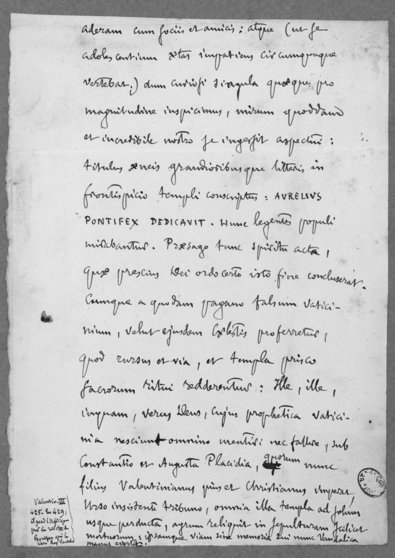 aderam cum sociis et amicis; atque (ut se
adolescentium ætas impatiens circumquaque
vertebat,) dum curiosi singula quæque pro
magnitudine inspicimus, mirum quoddam
et incredibile nostro se ingessit aspectui:
titulus æneis grandioribusque litteris in
frontispicio templi conscriptus: AURELIUS
PONTIFEX DEDICAVIT. Hunc legentes populi
mirabantur. Præsago tunc spiritu acta,
quæ præscius Dei ordo certo isto fine concluserat.
Cumque a quodam pagano falsum vatici-
nium, velut ejusdem Cælestis proferretur,
quod rursus et via, et templa prisco
sacrorum ritui redderentur: Ille, ille,
inquam, verus Deus, cujus prophetica vatici-
nia nesciunt omnino mentiri nec fallere, sub
Constantio et Augusta Placidia, quorum nunc
filius Valentinianus pius et Christianus imperat,
Urso insistente tribuno, omnia illa templa ad solum
usque perducta, agrum reliquit in sepulturam scilicet
mortuorum; ipsamque viam sine memoria sui nunc Vandalica
manus evertit.
Valentin. III
425. in 429,